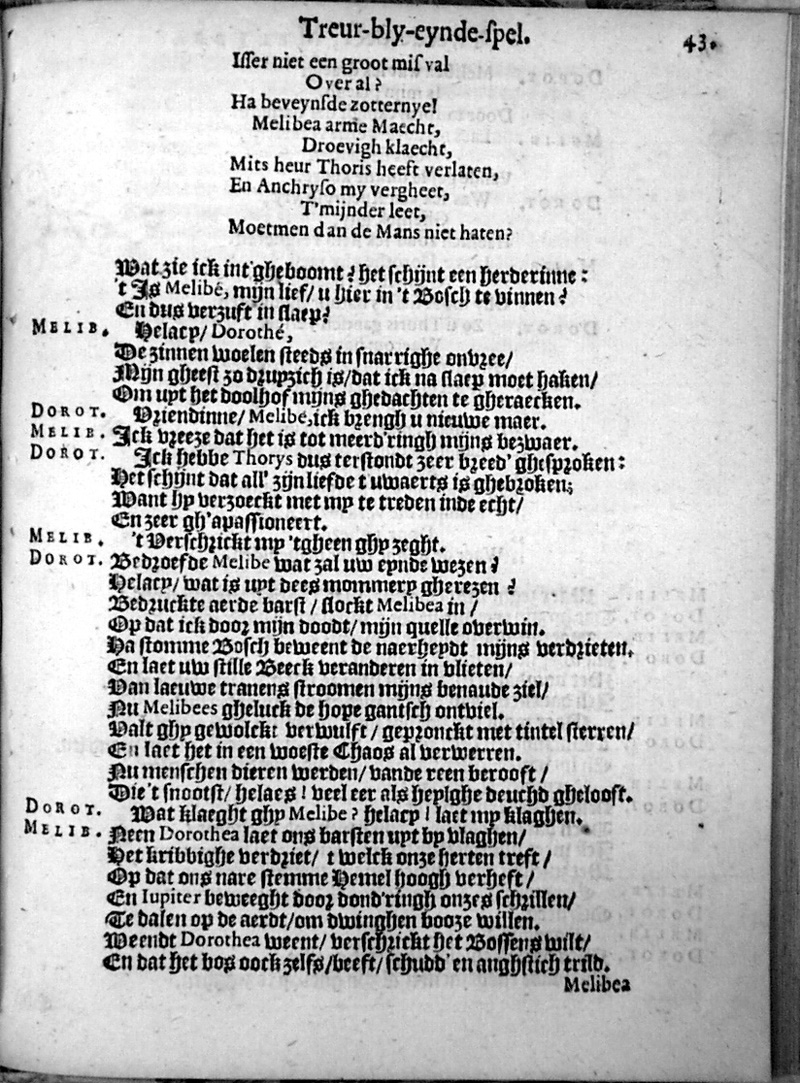 Treur-bly-eynde-spel. 43.
Isser niet een groot misval
Over al?
Ha beveynsde zotternye!
Melibea arme Maecht,
Droevigh klaecht,
Mits heur Thoris heeft verlaten,
En Anchryso my vergheet,
T'mijnder leet,
Moetmen dan de Mans niet haten?
Wat zie ick int'gheboomt? het schijnt een herderinne:
't Is Melibé, mijn lief/ u hier in 't Bosch te vinnen?
En dus verzuft in slaep?
MELIB. Helacy/ Dorothé,
De zinnen woelen steeds in snarrighe onvree/
Mijn gheest zo drupzich is/ dat ick na slaep moet haken/
Om uyt het doolhof mijns ghedachten te gheraecken.
DOROT. Vriendinne/ Melibé, ick brengh u nieuwe maer.
MELIB. Ick vreeze dat het is tot meerd'ringh mijns bezwaer.
DOROT. Ick hebbe Thorys dus terstondt zeer breed' ghesproken:
Het schijnt dat all' zijn liefde t'uwaerts is ghebroken;
Want hy verzoeckt met my te treden inde echt/
En zeer gh'apassioneert.
MELIB. 't Verschrickt my 'tgheen ghy zeght.
DOROT. Bedroefde Melibe wat zal uw eynde wezen?
Helacy/ wat is uyt dees mommery gherezen?
Bedruckte aerde barst/ slockt Melibea in/
Op dat ick door mijn doodt/ mijn quelle overwin.
Ha stomme Bosch beweent de naerheydt mijns verdrieten,
En laet uw stille Beeck veranderen in vlieten/
Van laeuwe tranens stroomen mijns benaude ziel/
Nu Melibees gheluck de hope gantsch ontviel.
Valt ghy gewolckt verwulft/ gepronckt met tintel sterren/
En laet het in een woeste Chaos al verwerren.
Nu menschen dieren werden/ vande reen berooft/
Die't snootst/ helaes! veel eer als heylghe deuchd ghelooft.
DOROT. Wat klaeght ghy Melibe? helacy! laet my klaghen.
MELIB. Neen Dorothea laet ons barsten uyt by vlaghen/
Het kribbighe verdriet/ t welck onze herten treft/
Op dat ons nare stemme Hemel hoogh verheft/
En Iupiter beweeght door dond'ringh onzes schrillen/
Te dalen op de aerdt/ om dwinghen booze willen.
Weendt Dorothea weent/ verschrickt het Bossens wilt/
En dat het bos oock zelfs/ beeft/ schudd' en anghstich trild.
Melibea